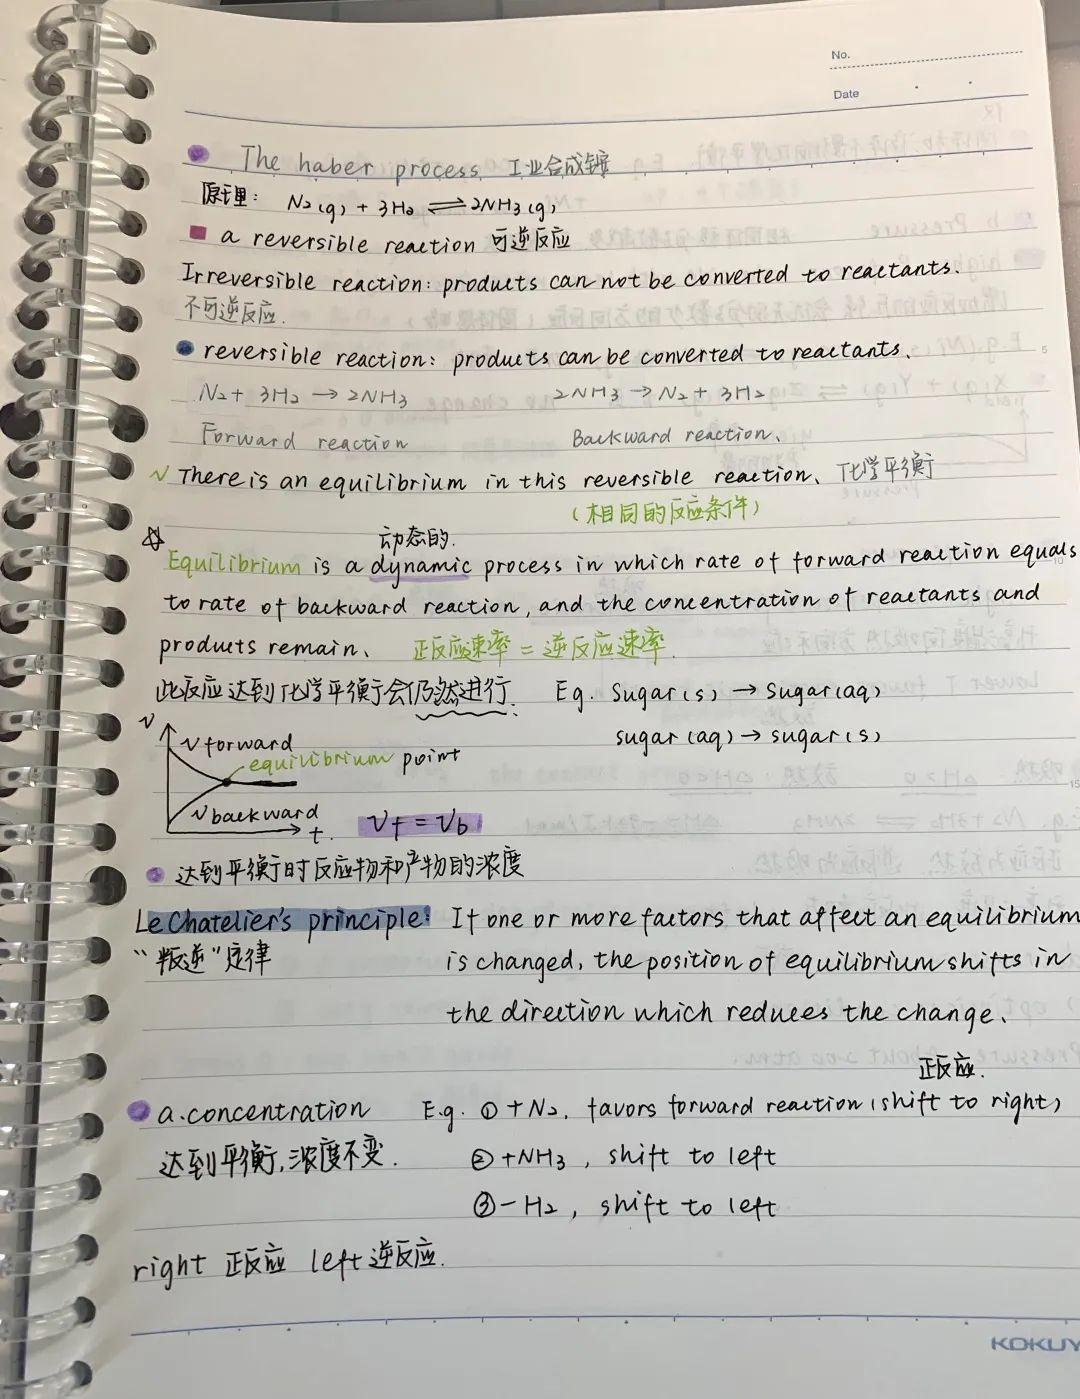 No.
Date
The haber process 工业合成铵
原理: N₂(g) + 3H₂ ⇌ 2NH₃(g)
a reversible reaction 可逆反应
Irreversible reaction: products can not be converted to reactants.
不可逆反应.
reversible reaction: products can be converted to reactants.
N₂ + 3H₂ → 2NH₃ 2NH₃ → N₂ + 3H₂
Forward reaction Backward reaction.
√ There is an equilibrium in this reversible reaction. 化学平衡
(相同的反应条件)
动态的.
Equilibrium is a dynamic process in which rate of forward reaction equals
to rate of backward reaction, and the concentration of reactants and
products remain. 正反应速率 = 逆反应速率.
此反应达到化学平衡于会仍然进行. Eg. Sugar(s) → Sugar(aq)
sugar (aq) → sugar (s)
v
v forward
equilibrium point
v backward
t. Vf = Vb
达到平衡时反应物和产物的浓度
Le Chatelier's principle: If one or more factors that affect an equilibrium
"叛逆"定律 is changed, the position of equilibrium shifts in
the direction which reduces the change.
正反应.
a. concentration E.g. ① +N₂, favors forward reaction (shift to right)
达到平衡, 浓度不变. ② +NH₃, shift to left
③ -H₂, shift to left
right 正反应 left 逆反应.
KOKUY